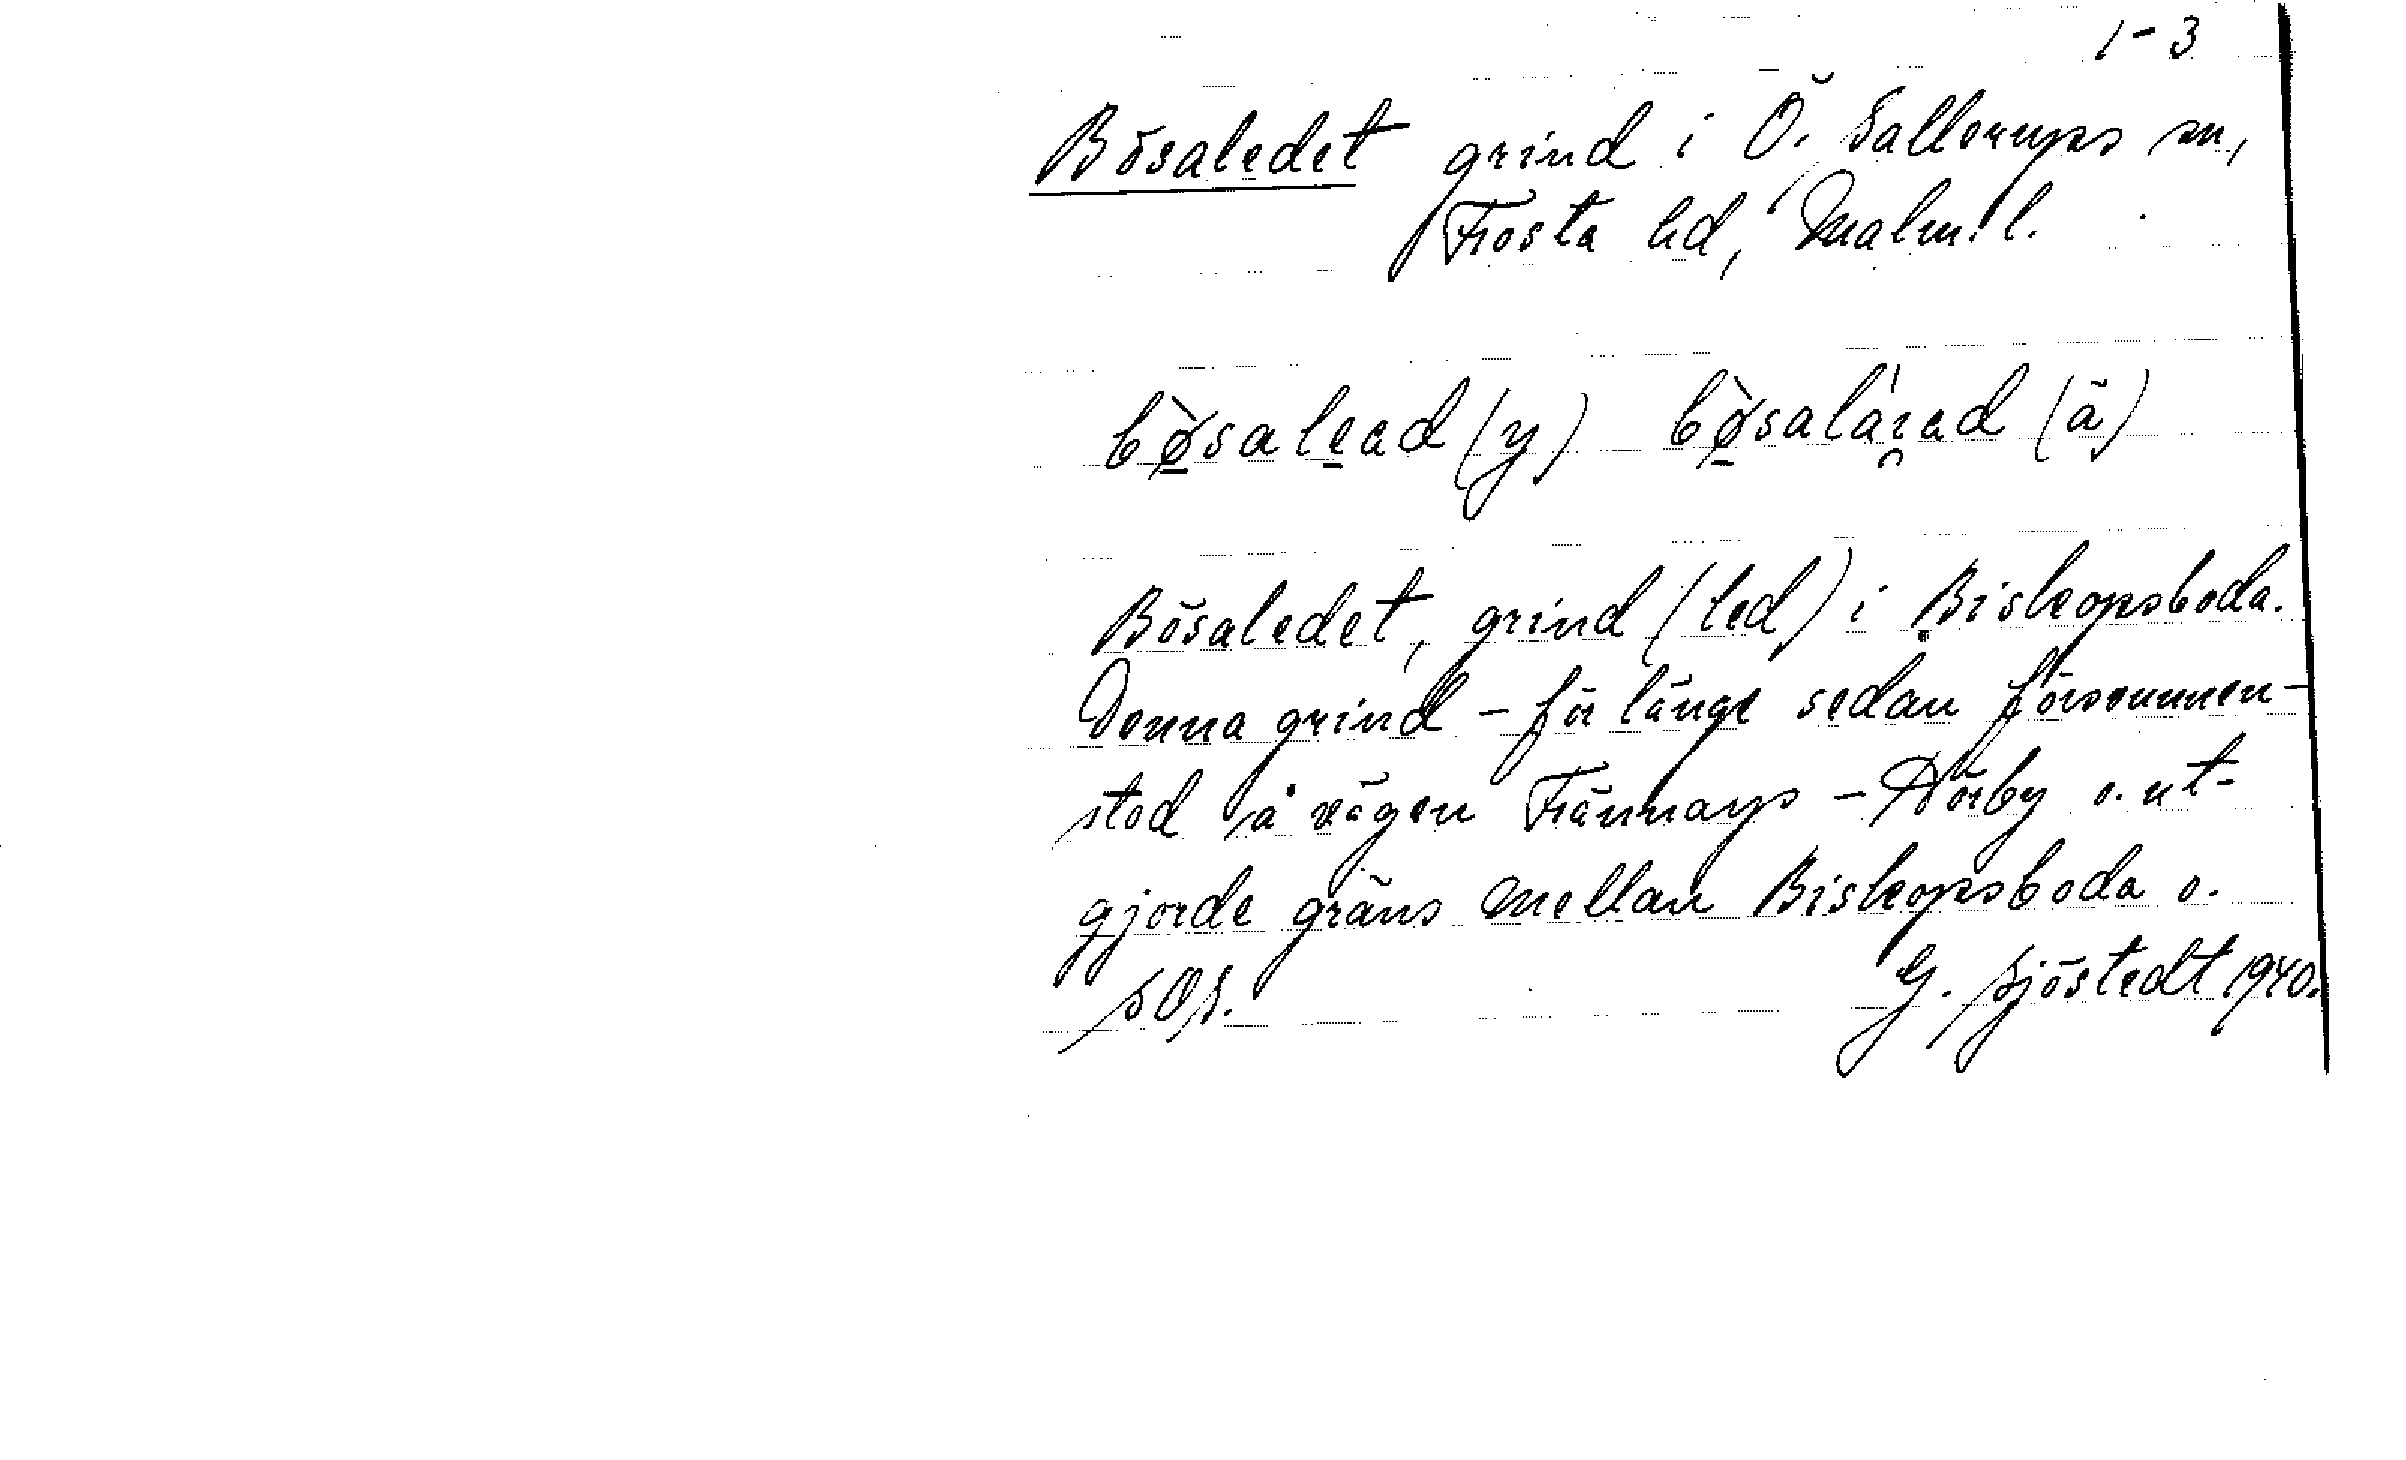 1-3
Bösaledet grind i Ö. Sallerups sn,
Frosta hd, Malm. l.
bø̀salead (y) bø̀salárad (ä)
Bösaledet, grind (led) i Biskopsboda.
Denna grind - för länge sedan försvunnen -
stod å vägen Frännarp - Dörby o. ut-
gjorde gräns mellan Biskopsboda o.
SÖS.
G. Sjöstedt 1940.